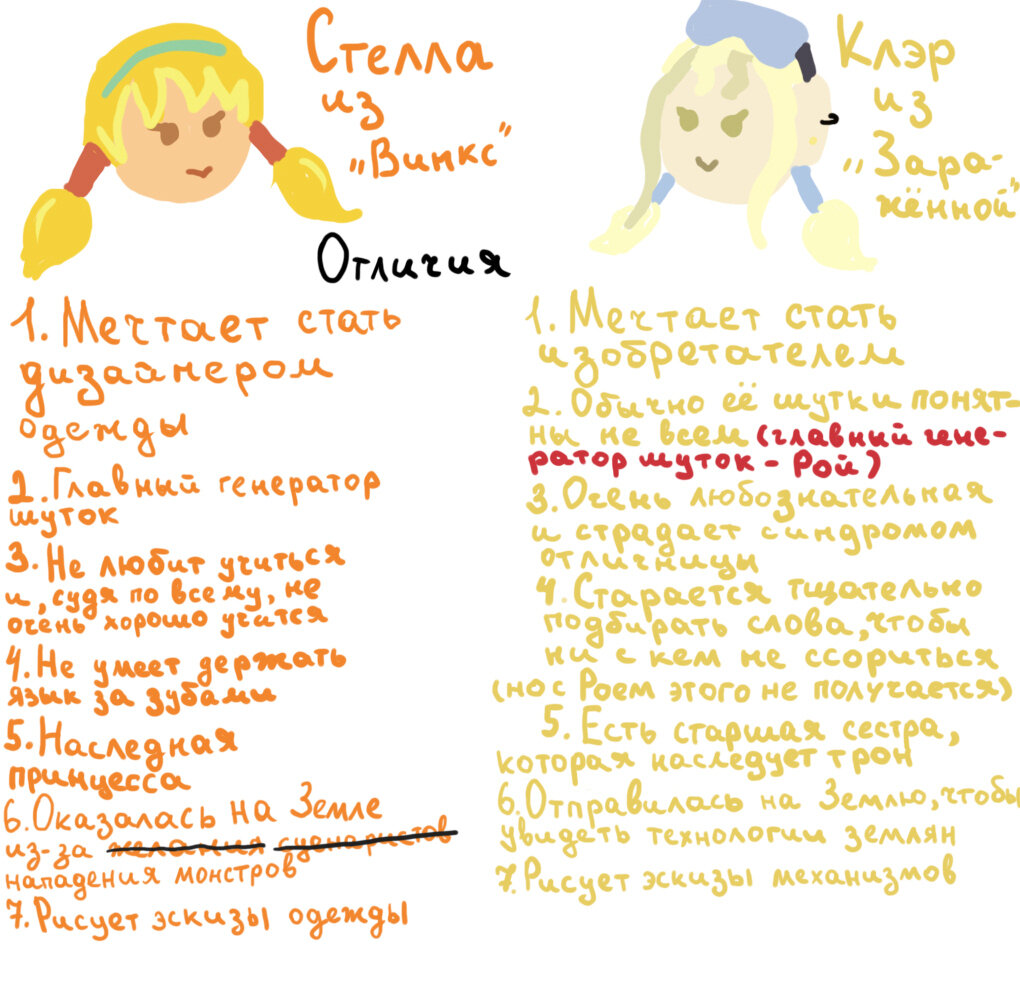 Стелла
из
„Винкс"
Клэр
из
„Зара-
жённой"
Отличия
1. Мечтает стать
дизайнером
одежды
2. Главный генератор
шуток
3. Не любит учиться
и, судя по всему, не
очень хорошо учится
4. Не умеет держать
язык за зубами
5. Наследная
принцесса
6. Оказалась на Земле
из-за желания сценаристов
нападения монстров
7. Рисует эскизы одежды
1. Мечтает стать
изобретателем
2. Обычно её шутки понят-
ны не всем (главный гене-
ратор шуток - Рой)
3. Очень любознательная
и страдает синдромом
отличницы
4. Старается тщательно
подбирать слова, чтобы
ни с кем не ссориться
(но с Роем этого не получается)
5. Есть старшая сестра,
которая наследует трон
6. Отправилась на Землю, чтобы
увидеть технологии землян
7. Рисует эскизы механизмов